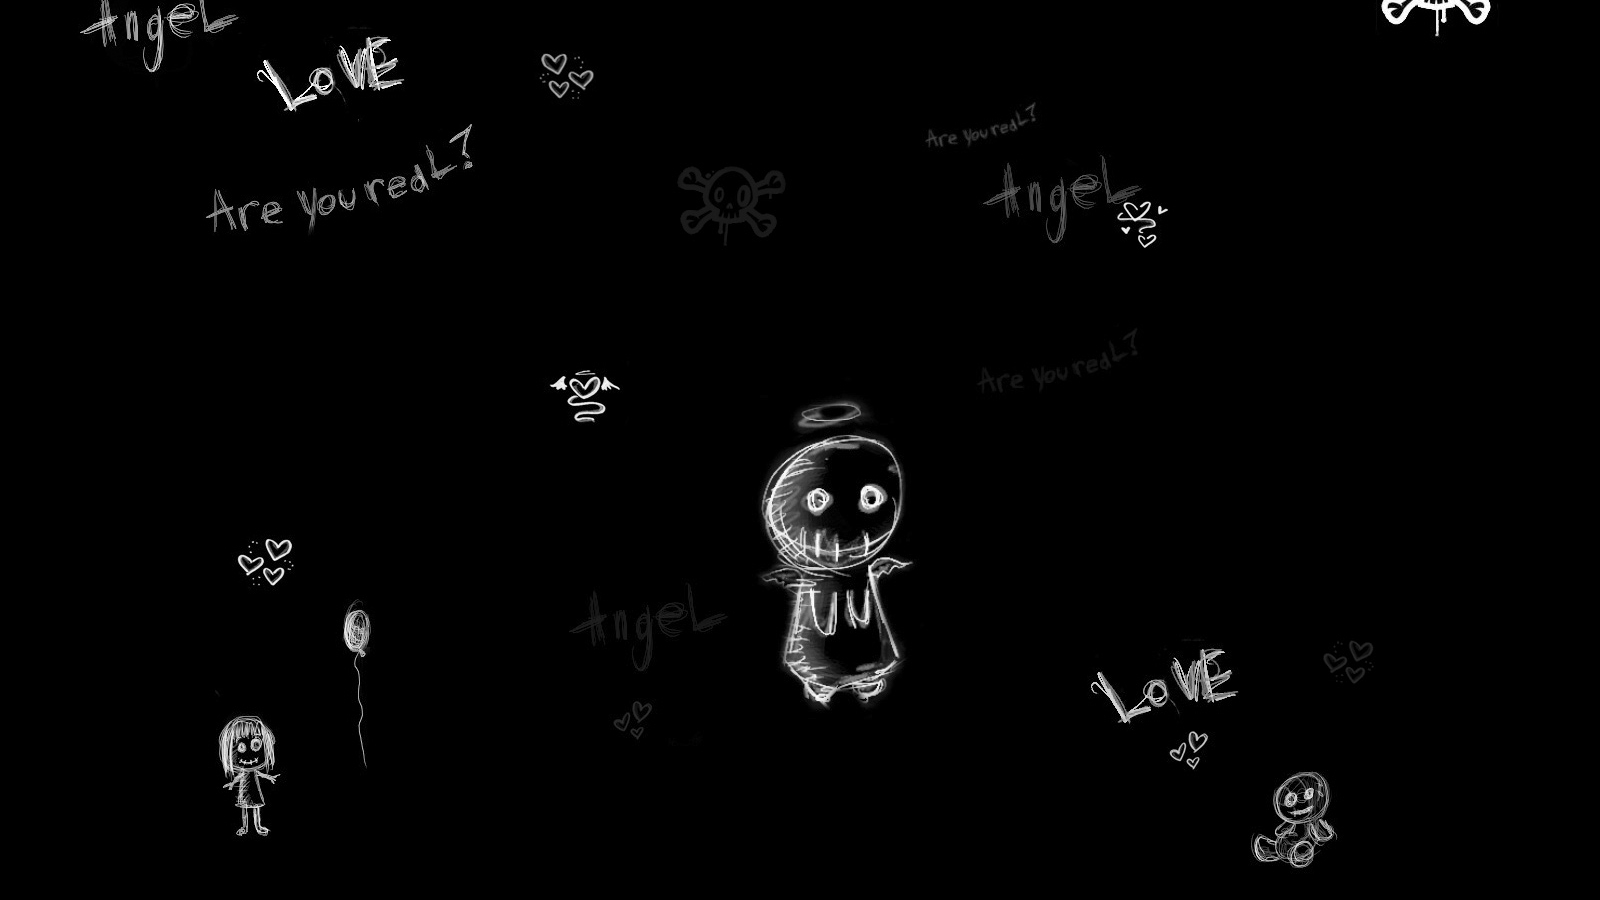 AngeL
LoVE
Are you reaL?
Are you reaL?
AngeL
Are you reaL?
AngeL
LoVE